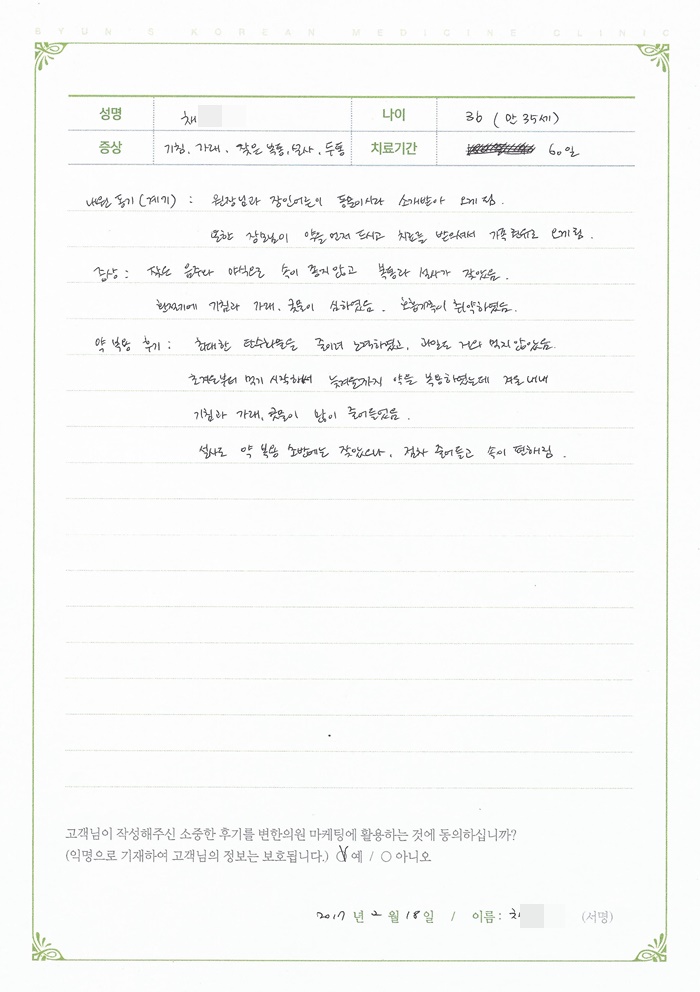 BYUN'S KOREAN MEDICINE CLINIC
성명 채 나이 36 ( 만 35세)
증상 기침, 가래, 잦은 복통, 설사, 두통 치료기간 60일
내원 동기(계기) : 원장님과 장인어른이 동문이시라 소개받아 오게 됨.
또한 장모님이 약을 먼저 드시고 치료를 받으셔서 가족 단위로 오게 됨.
증상 : 잦은 음주나 야식으로 속이 좋지 않고 복통과 설사가 잦았음.
환절기에 기침과 가래, 콧물이 심하였음. 호흡기쪽이 취약하였음.
약 복용 후기 : 최대한 탄수화물을 줄이려 노력하였고, 과일도 거의 먹지 않았음.
초겨울부터 먹기 시작해서 늦겨울까지 약을 복용하였는데 겨울내내
기침과 가래, 콧물이 많이 줄어들었음.
설사도 약 복용 초반에는 잦았으나, 점차 줄어들고 속이 편해짐.
고객님이 작성해주신 소중한 후기를 변한의원 마케팅에 활용하는 것에 동의하십니까?
(익명으로 기재하여 고객님의 정보는 보호됩니다.) ○ 예 / ○ 아니오
2017 년 2 월 18 일 / 이름 : 채 (서명)